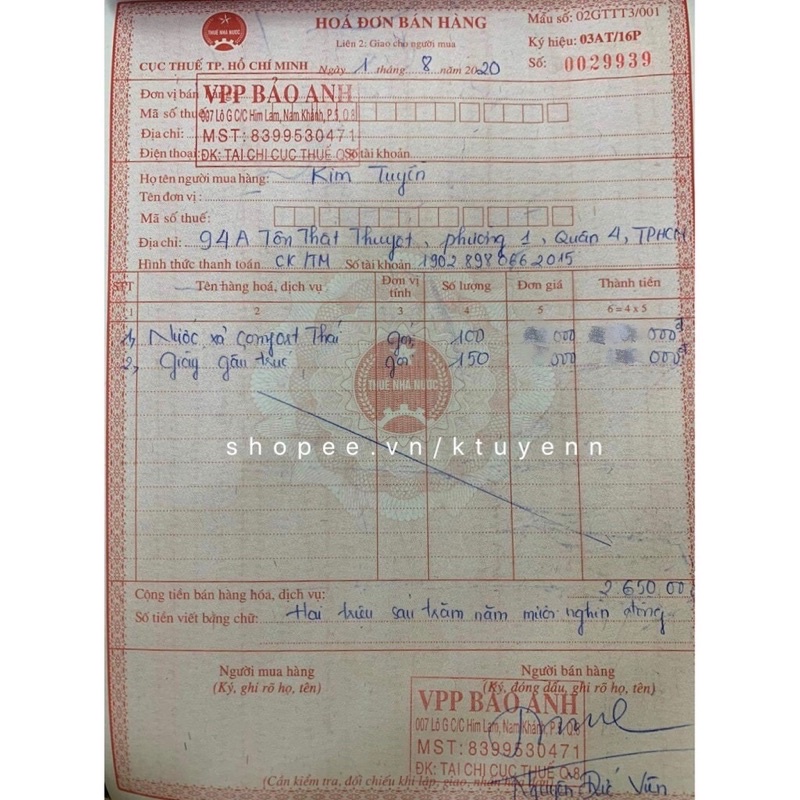 HOÁ ĐƠN BÁN HÀNG
Mẫu số: 02GTTT3/001
Liên 2: Giao cho người mua
Ký hiệu: 03AT/16P
THUẾ NHÀ NƯỚC
CỤC THUẾ TP. HỒ CHÍ MINH
Ngày 1 tháng 8 năm 2020
Số: 0029939
Đơn vị bán
VPP BẢO ANH
Mã số thuế
007 Lô G C/C Him Lam, Nam Khánh, P.5, Q.8
Địa chỉ:
MST: 8399530471
Điện thoại:
ĐK: TẠI CHI CỤC THUẾ Q.8
Số tài khoản
Họ tên người mua hàng: Kim Tuyền
Tên đơn vị:
Mã số thuế:
Địa chỉ: 94A Tôn Thất Thuyết, phường 1, Quận 4, TPHCM
Hình thức thanh toán CK/TM Số tài khoản 1902 898 0662015
STT Tên hàng hoá, dịch vụ Đơn vị tính Số lượng Đơn giá Thành tiền
1 2 3 4 5 6 = 4 x 5
1, Nước xả Comfort Thái gói 100 000 000đ
2, Giấy gấu trúc gói 150 000 000đ
THUẾ NHÀ NƯỚC
shopee.vn/ktuyenn
Cộng tiền bán hàng hóa, dịch vụ: 2 650,00
Số tiền viết bằng chữ: Hai triệu sáu trăm năm mươi nghìn đồng
Người mua hàng
Người bán hàng
(Ký, ghi rõ họ, tên)
(Ký, đóng dấu, ghi rõ họ, tên)
VPP BẢO ANH
007 Lô G C/C Him Lam, Nam Khánh, P.5 Q.8
MST: 8399530471
ĐK: TẠI CHI CỤC THUẾ Q.8
(Cần kiểm tra, đối chiếu khi lập, giao, nhận
Nguyễn Đức Văn